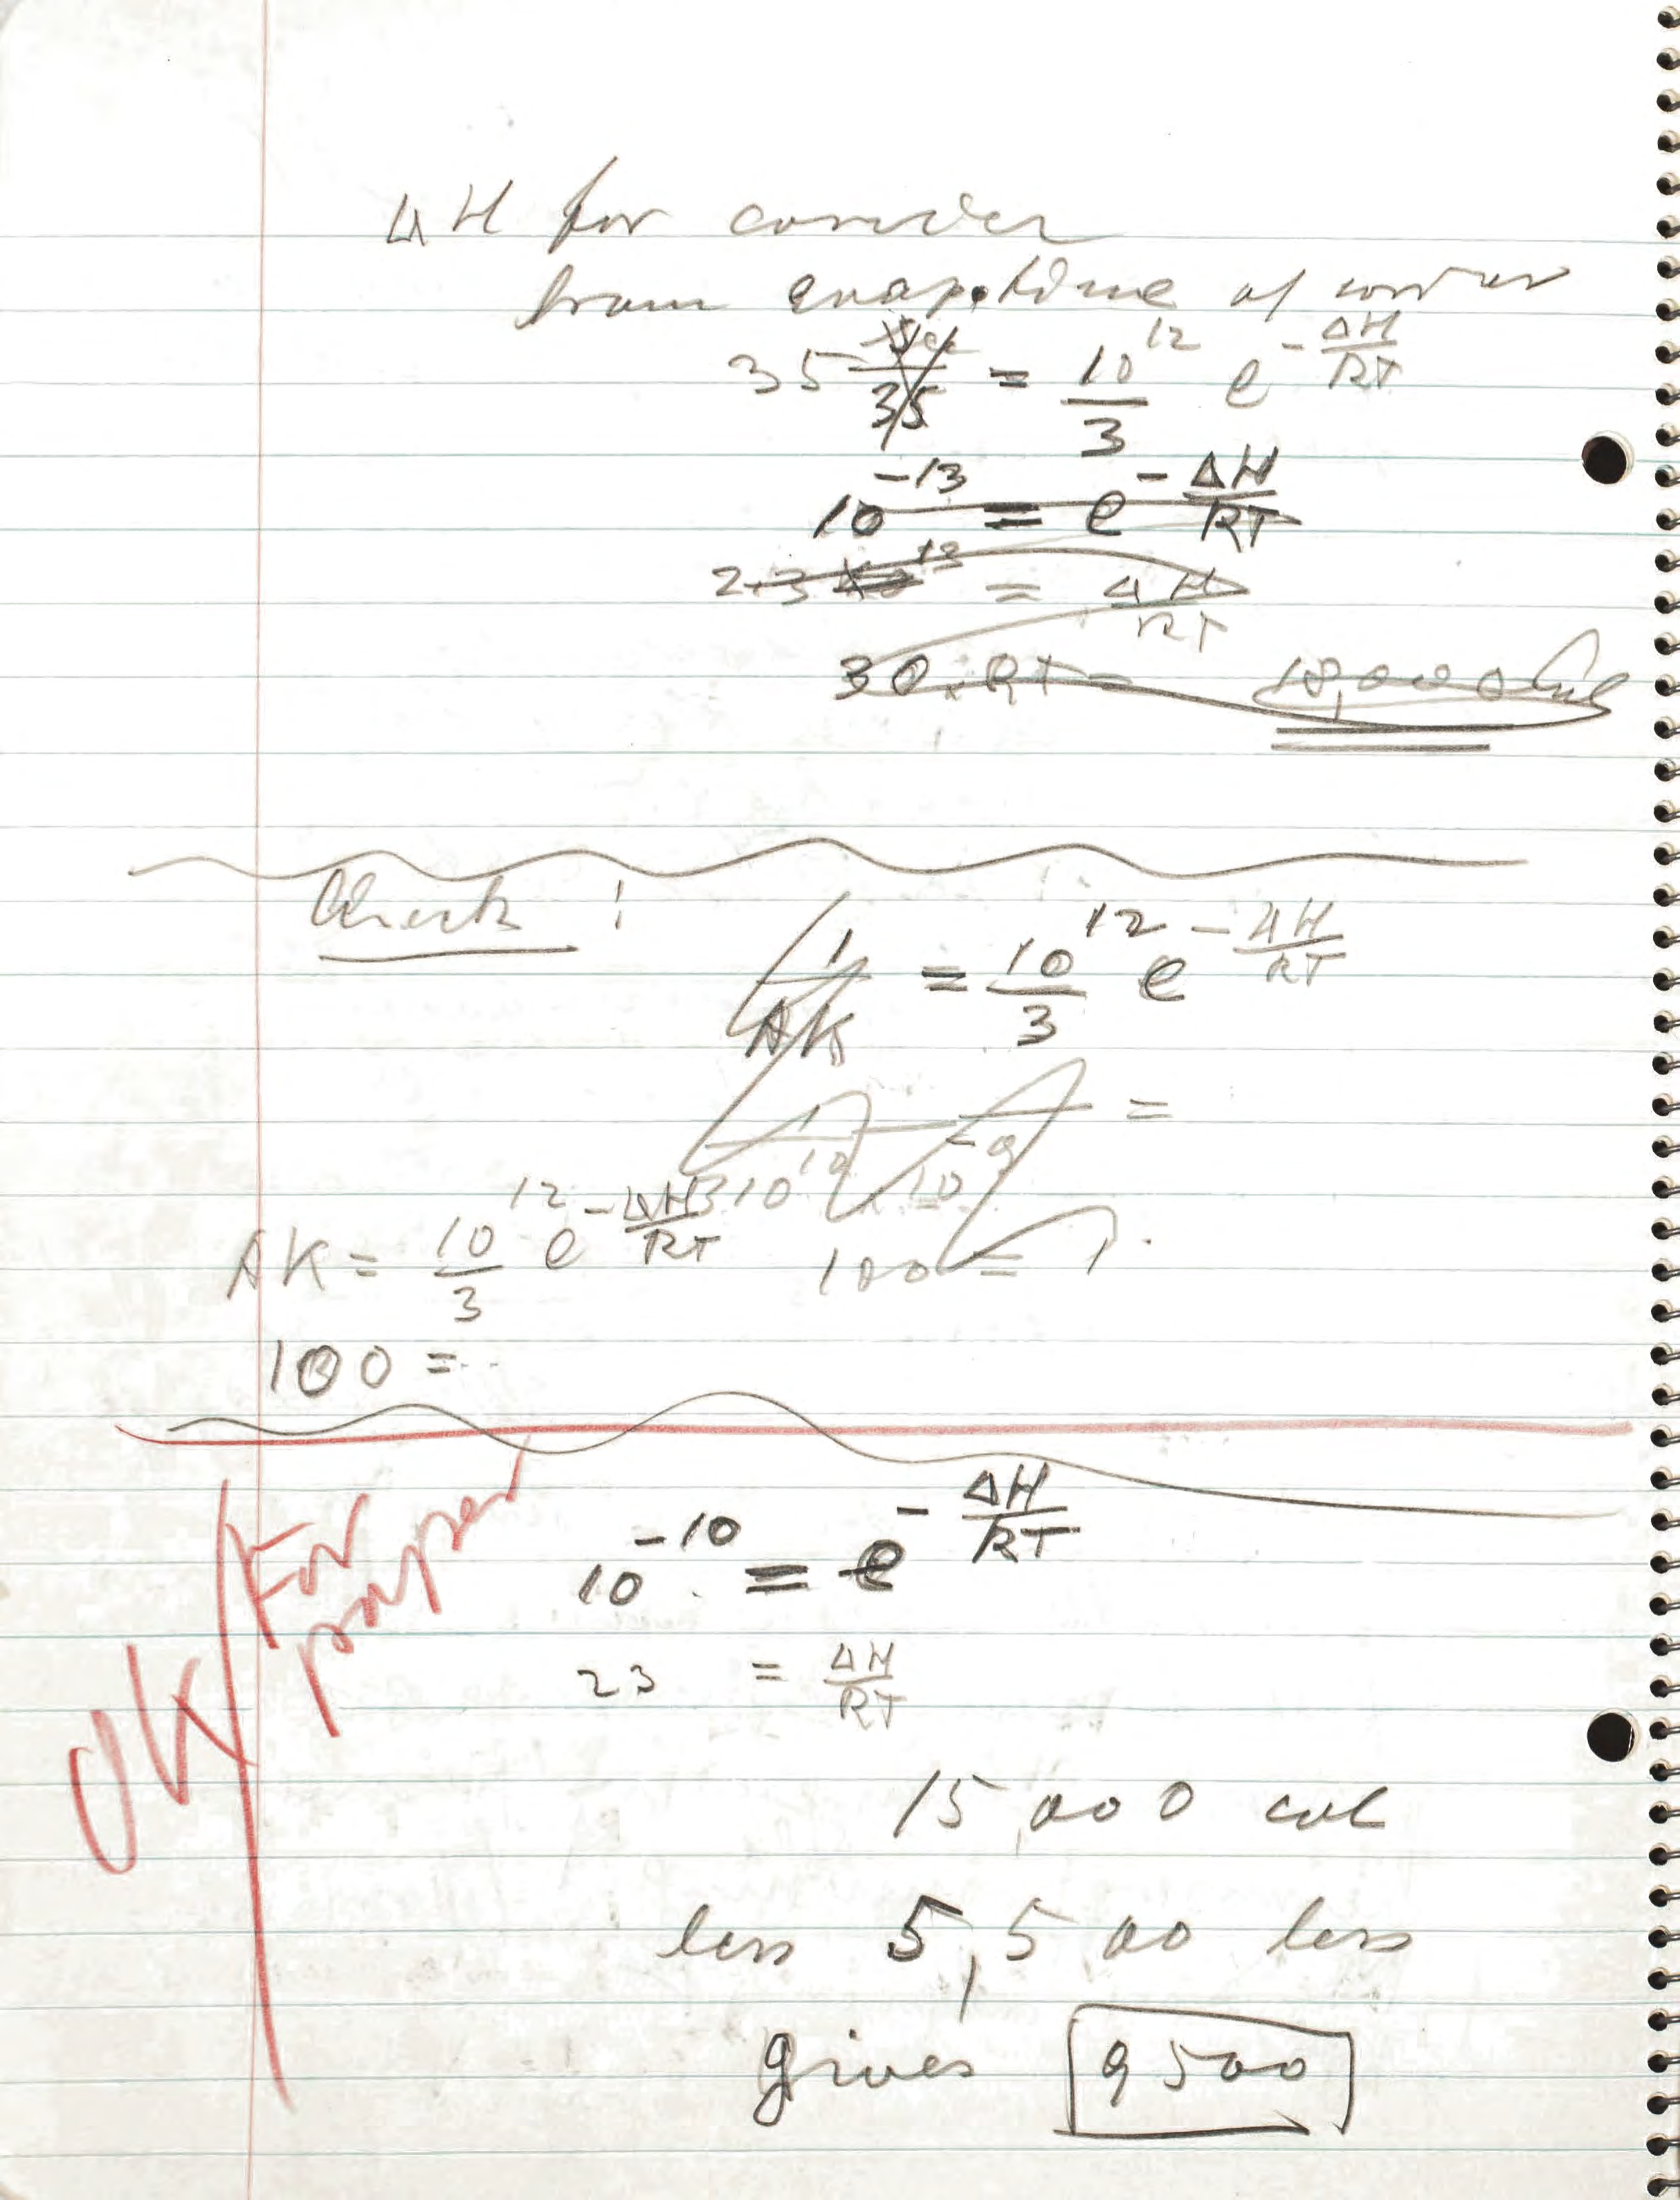 ΔH for
from evap. time of
35 = 10^12/3 e^-ΔH/RT
10^-13 = e^-ΔH/RT
2.3 = ΔH/RT
30 RT = 18,000 Cal
Check :
1/AK = 10^12/3 e^-ΔH/RT
AK = 10^12/3 e^-ΔH/RT
100 =
100 = ..
OK / For paper
10^-10 = e^-ΔH/RT
23 = ΔH/RT
15,000 cal
less 5,500 less
gives 9500